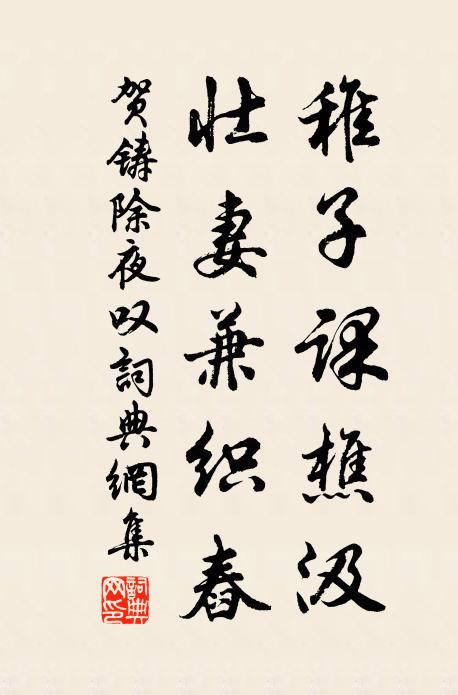 稚子课樵汲
壮妻兼织舂
贺铸除夜叹词典網集
詞典網印